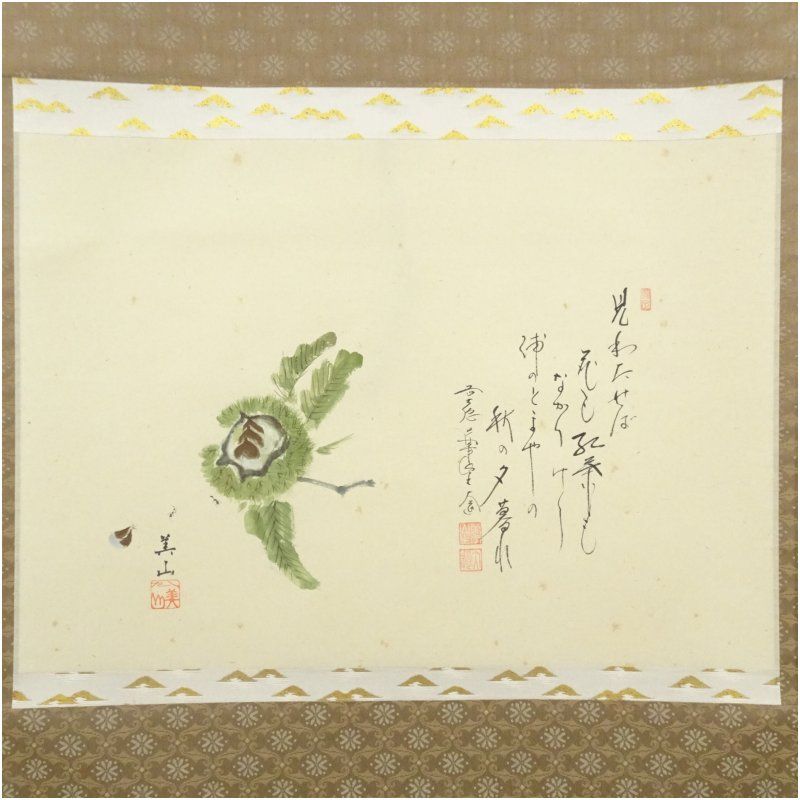 見わたせば
花も紅葉も
なかりけり
浦のとまやの
秋の夕暮れ
美山
美山